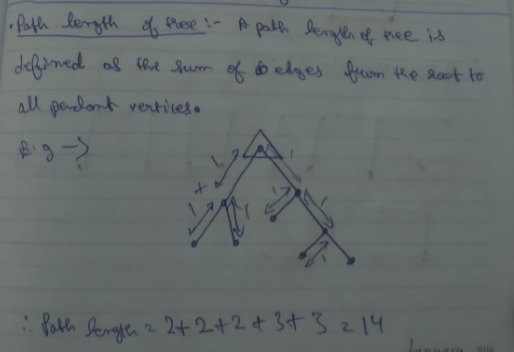 • Path length of tree :- A path length of tree is
defined as the sum of edges from the root to
all pendant vertices.
E.g →
1 1
1 1 1 1
1
∴ Path length = 2+2+2+3+3 = 14
January